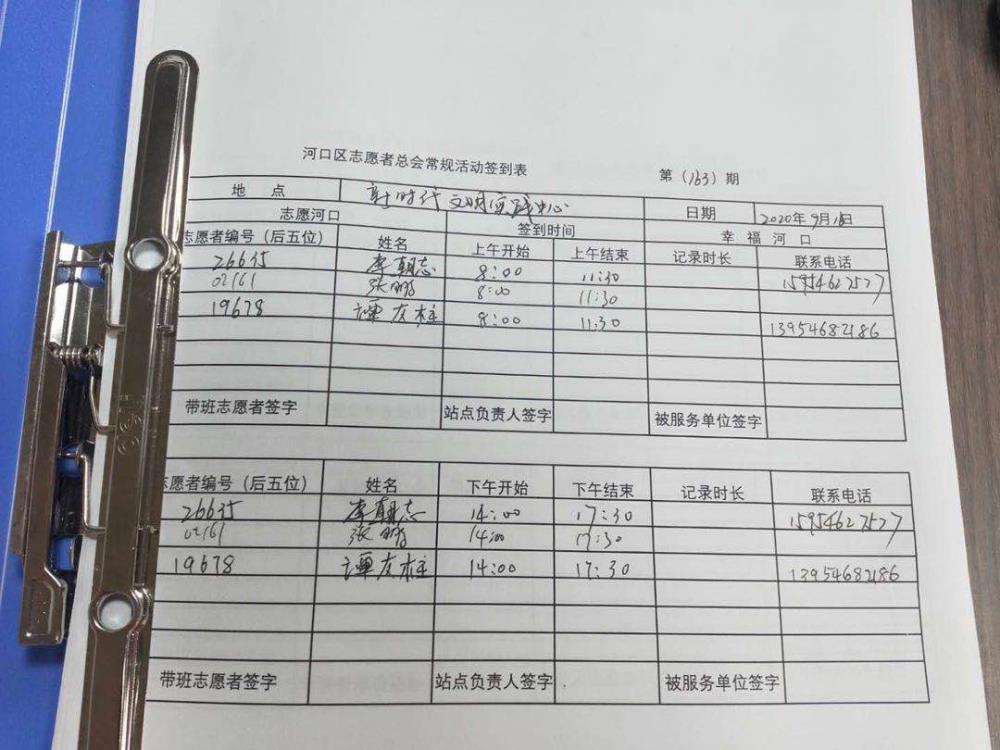 河口区志愿者总会常规活动签到表 第（163）期
地 点 新时代文明实践中心 日期 2020年9月18日
志愿河口 签到时间 幸 福 河 口
志愿者编号（后五位） 姓名 上午开始 上午结束 记录时长 联系电话
26635 李朝志 8:00 11:30 15954627577
02161 张鹏 8:00 11:30
19678 谭友柱 8:00 11:30 13954682186
带班志愿者签字 站点负责人签字 被服务单位签字
志愿者编号（后五位） 姓名 下午开始 下午结束 记录时长 联系电话
26635 李朝志 14:00 17:30 15954627577
02161 张鹏 14:00 17:30
19678 谭友柱 14:00 17:30 13954682186
带班志愿者签字 站点负责人签字 被服务单位签字